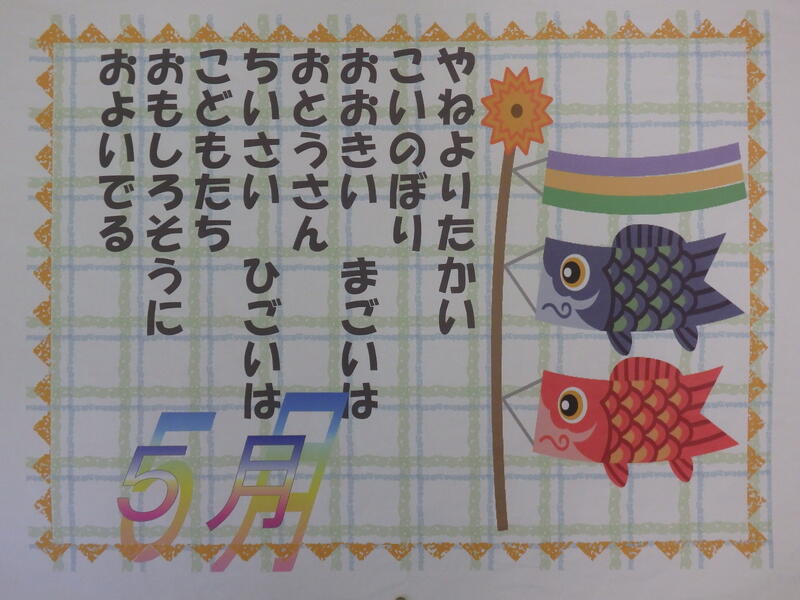 やねよりたかい
こいのぼり
おおきい　まごいは
おとうさん
ちいさい　ひごいは
こどもたち
おもしろそうに
およいでる
5月